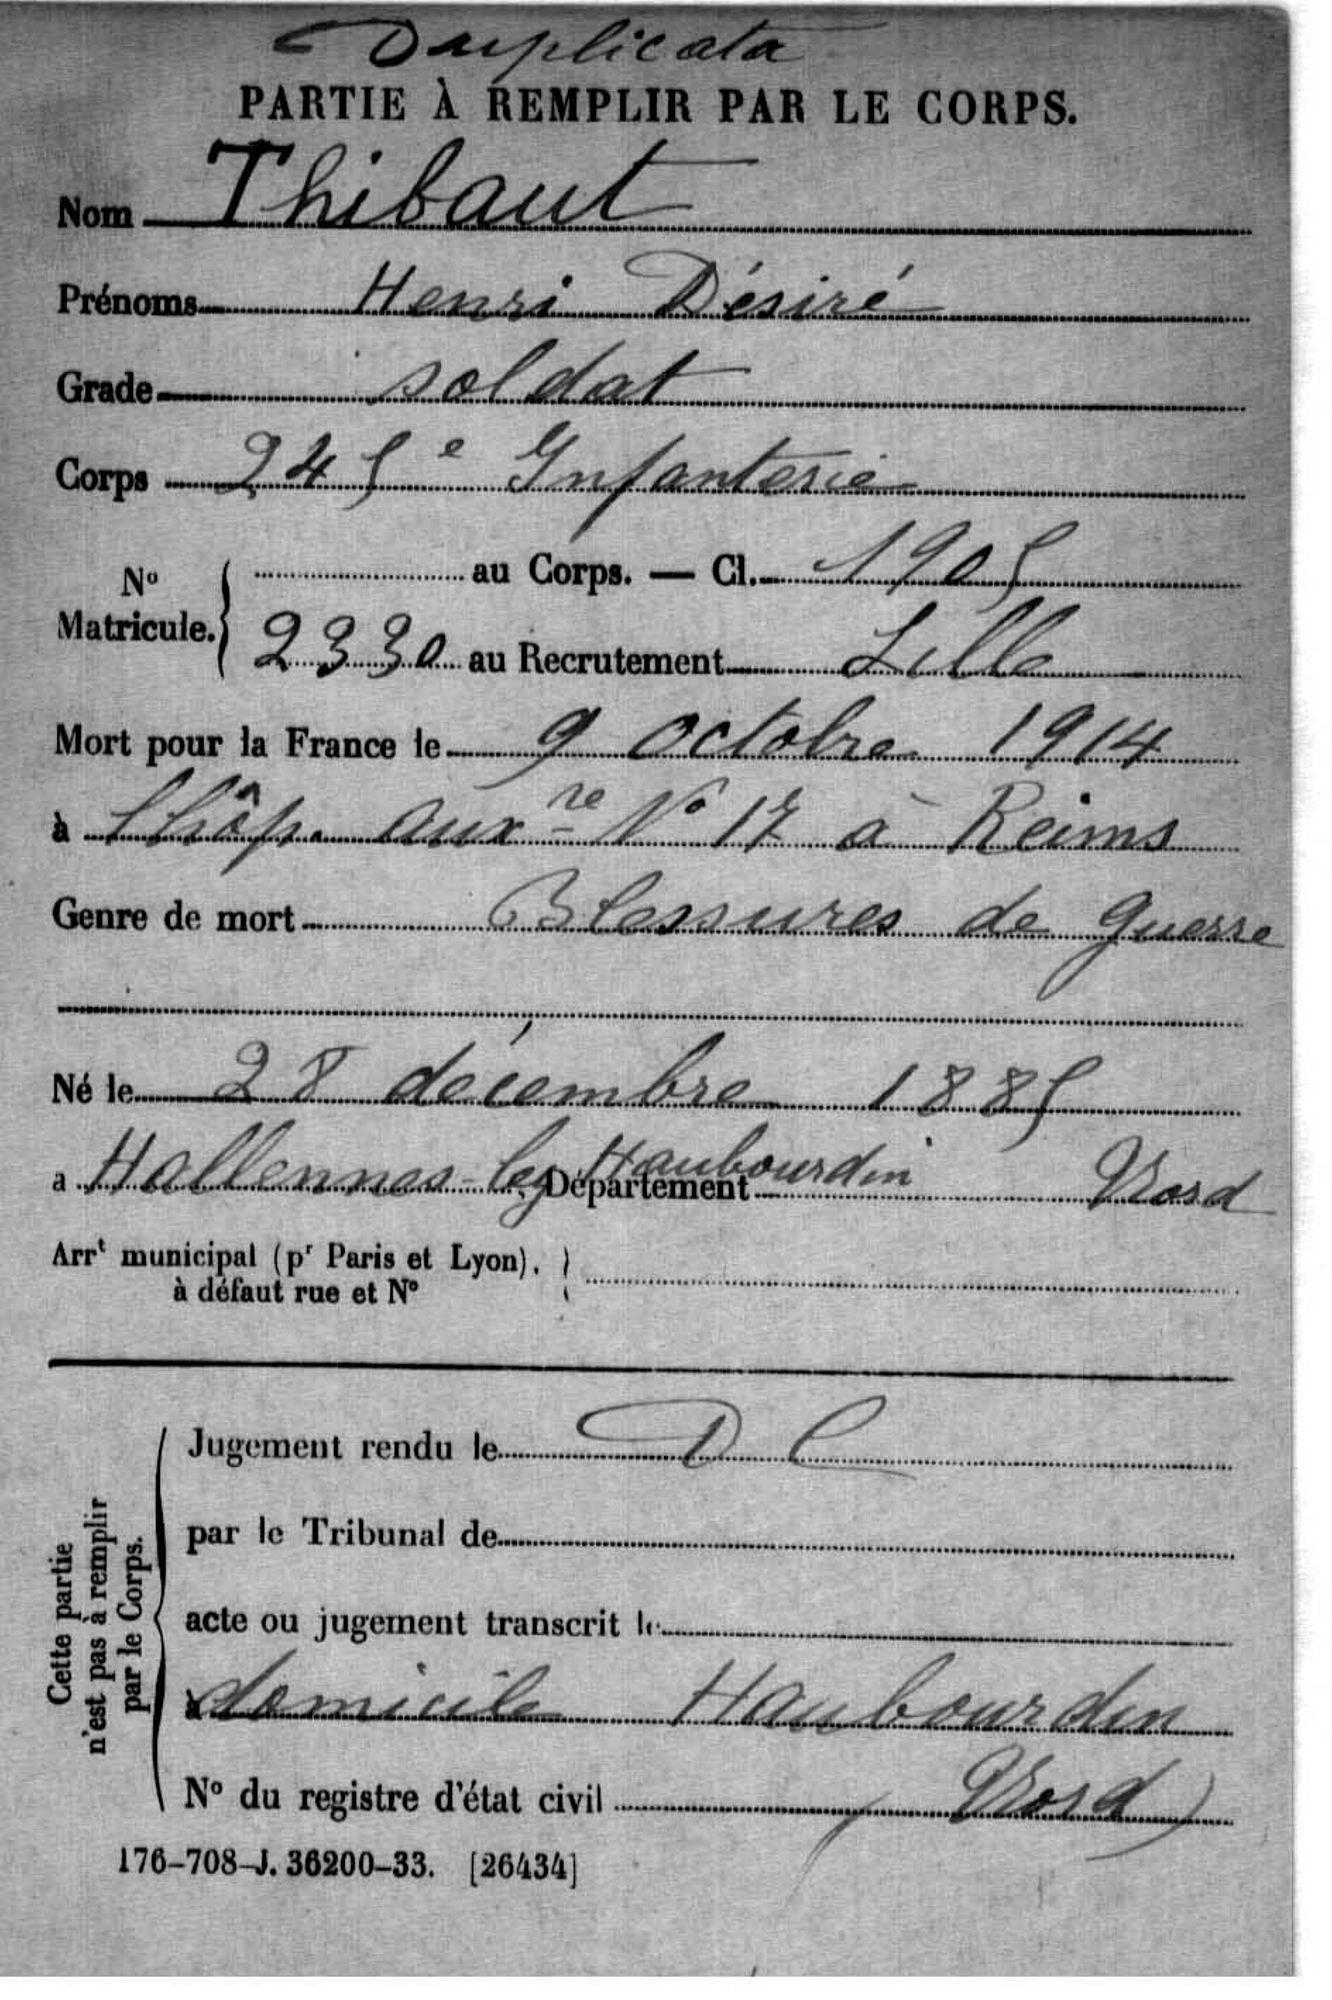 Duplicata
PARTIE À REMPLIR PAR LE CORPS.
Nom Thibaut
Prénoms Henri Désiré
Grade soldat
Corps 245e Infanterie
No Matricule. { au Corps. — Cl. 1905
2330 au Recrutement Lille
Mort pour la France le 9 octobre 1914
à l'hôp. auxre No 17 à Reims
Genre de mort Blessures de guerre
Né le 28 décembre 1885
a Hallennes-lez Haubourdin Département Nord
Arrt municipal (pr Paris et Lyon), }
à défaut rue et No
Cette partie
n'est pas à remplir
par le Corps.
Jugement rendu le D C
par le Tribunal de
acte ou jugement transcrit le
à domicile Haubourdin
No du registre d'état civil (Nord)
176-708-J. 36200-33. [26434]